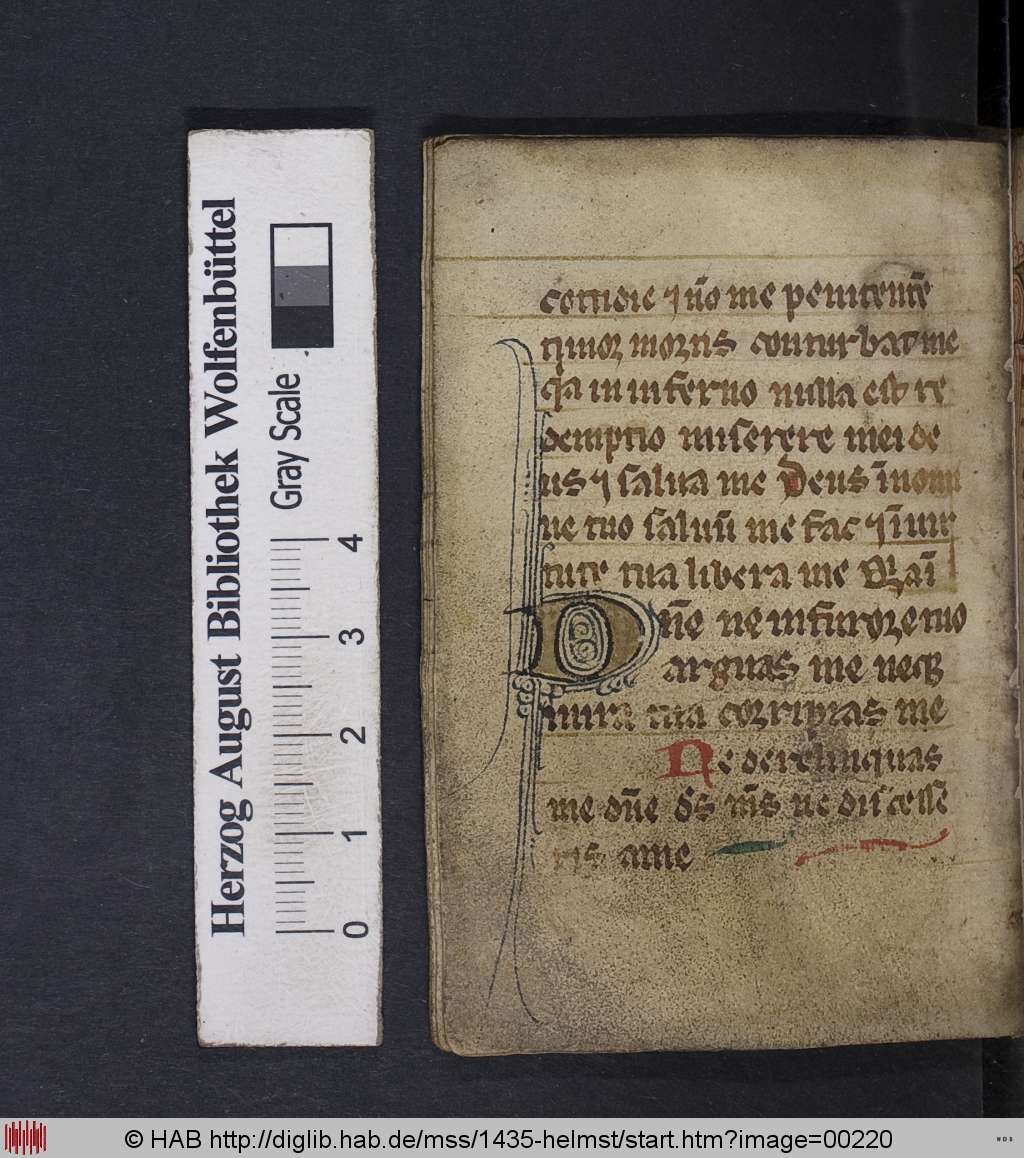 Herzog August Bibliothek Wolfenbüttel
Gray Scale
0 1 2 3 4
cottidie ⁊ nō me penitentē
timor mortis conturbat me
q̄a in inferno nulla est re
demptio miserere mei de
us ⁊ salua me Deus ī nomi
ne tuo saluū me fac ⁊ ī uir
tute tua libera me Oꝛaī
Dn̄e ne in furoꝛe tuo
arguas me neqꝫ
in ira tua coꝛripias me
Ne derelinquas
me dn̄e ds̄ ms̄ ne discesse
ris a me
© HAB http://diglib.hab.de/mss/1435-helmst/start.htm?image=00220